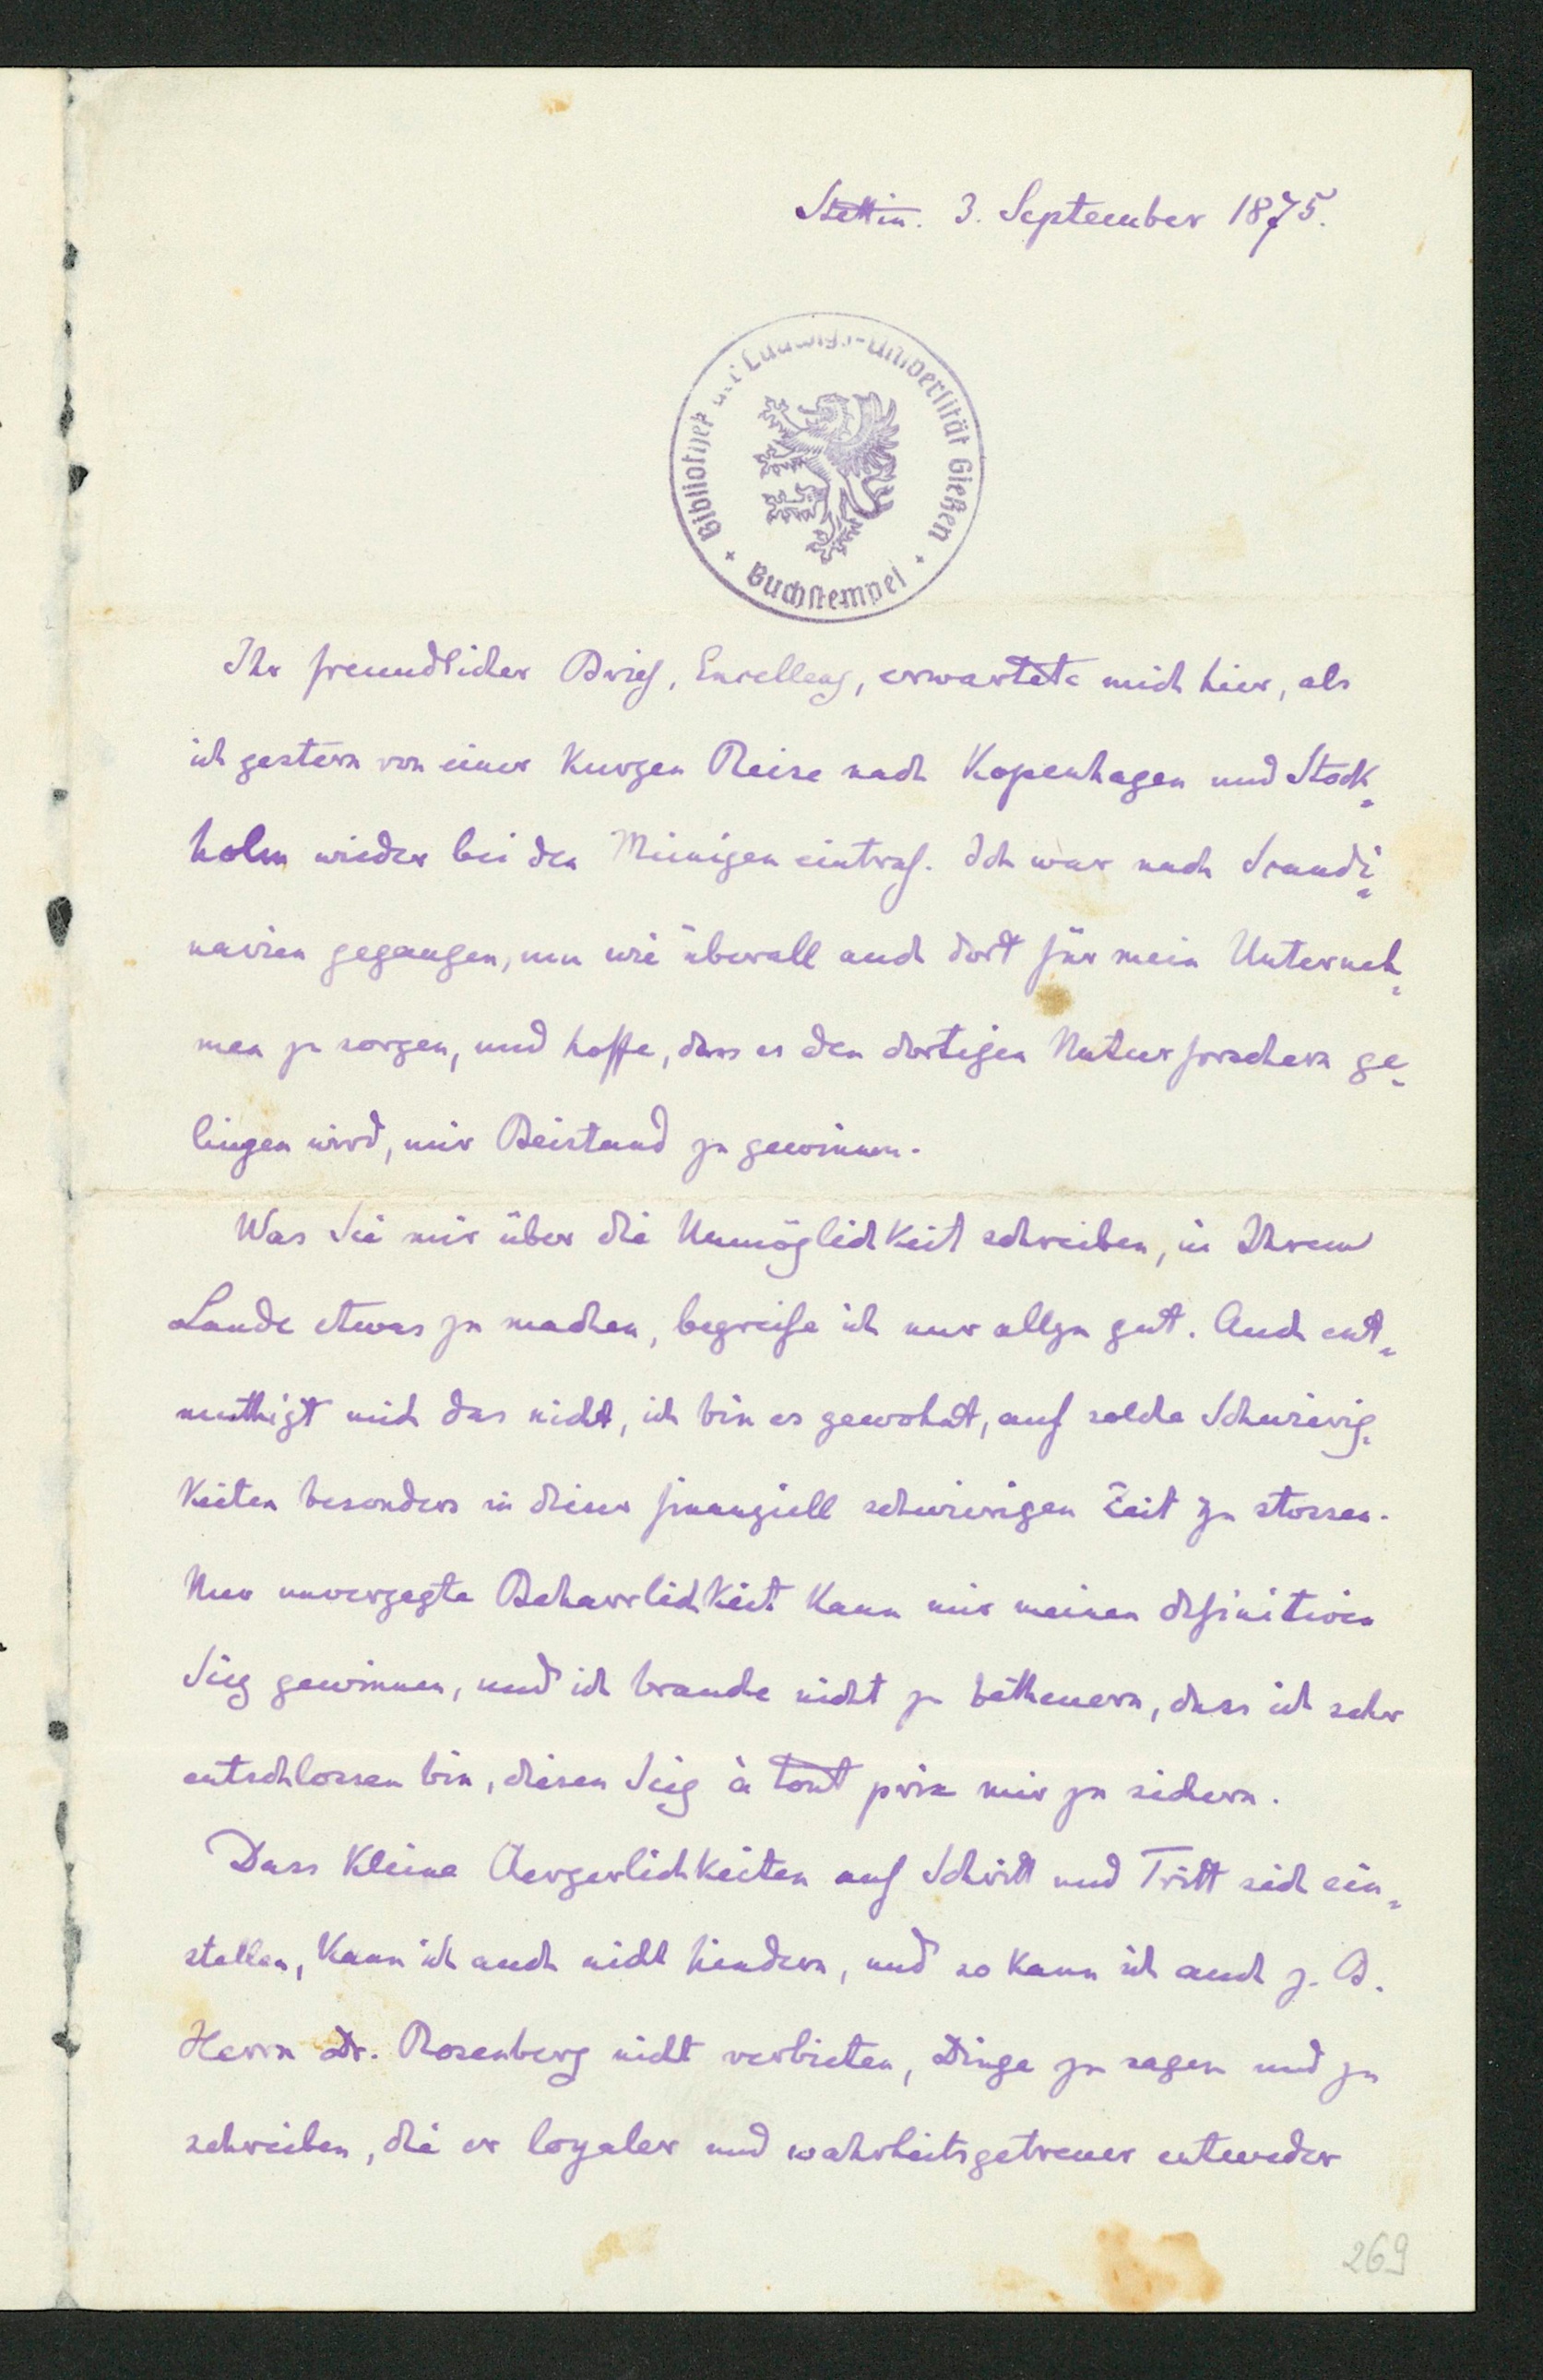 Stettin. 3. September 1875.
Bibliothek der Ludwigs-Universität Gießen
Buchstempel
Ihr freundlicher Brief, Excellenz, erwartete mich hier, als
ich gestern von einer kurzen Reise nach Kopenhagen und Stock-
holm wieder bei den Meinigen eintraf. Ich war nach Scandi-
navien gegangen, um wie überall auch dort für mein Unterneh-
men zu sorgen, und hoffe, dass es den dortigen Naturforschern ge-
lingen wird, mir Beistand zu gewinnen.
Was Sie mir über die Unmöglichkeit schreiben, in Ihrem
Lande etwas zu machen, begreife ich nur allzu gut. Auch ent-
muthigt mich das nicht, ich bin es gewohnt, auf solche Schwierig-
keiten besonders in dieser finanziell schwierigen Zeit zu stossen.
Nur unverzagte Beharrlichkeit kann mir meinen definitiven
Sieg gewinnen, und ich brauche nicht zu betheuern, dass ich sehr
entschlossen bin, diesen Sieg à tout prix mir zu sichern.
Dass kleine Aergerlichkeiten auf Schritt und Tritt sich ein-
stellen, kann ich auch nicht hindern, und so kann ich auch z. B.
Herrn Dr. Rosenberg nicht verbieten, Dinge zu sagen und zu
schreiben, die er loyaler und wahrheitsgetreuer entweder
269